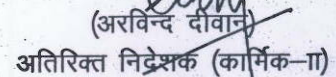 (अरविन्द दीवान)
अतिरिक्त निदेशक (कार्मिक–II)